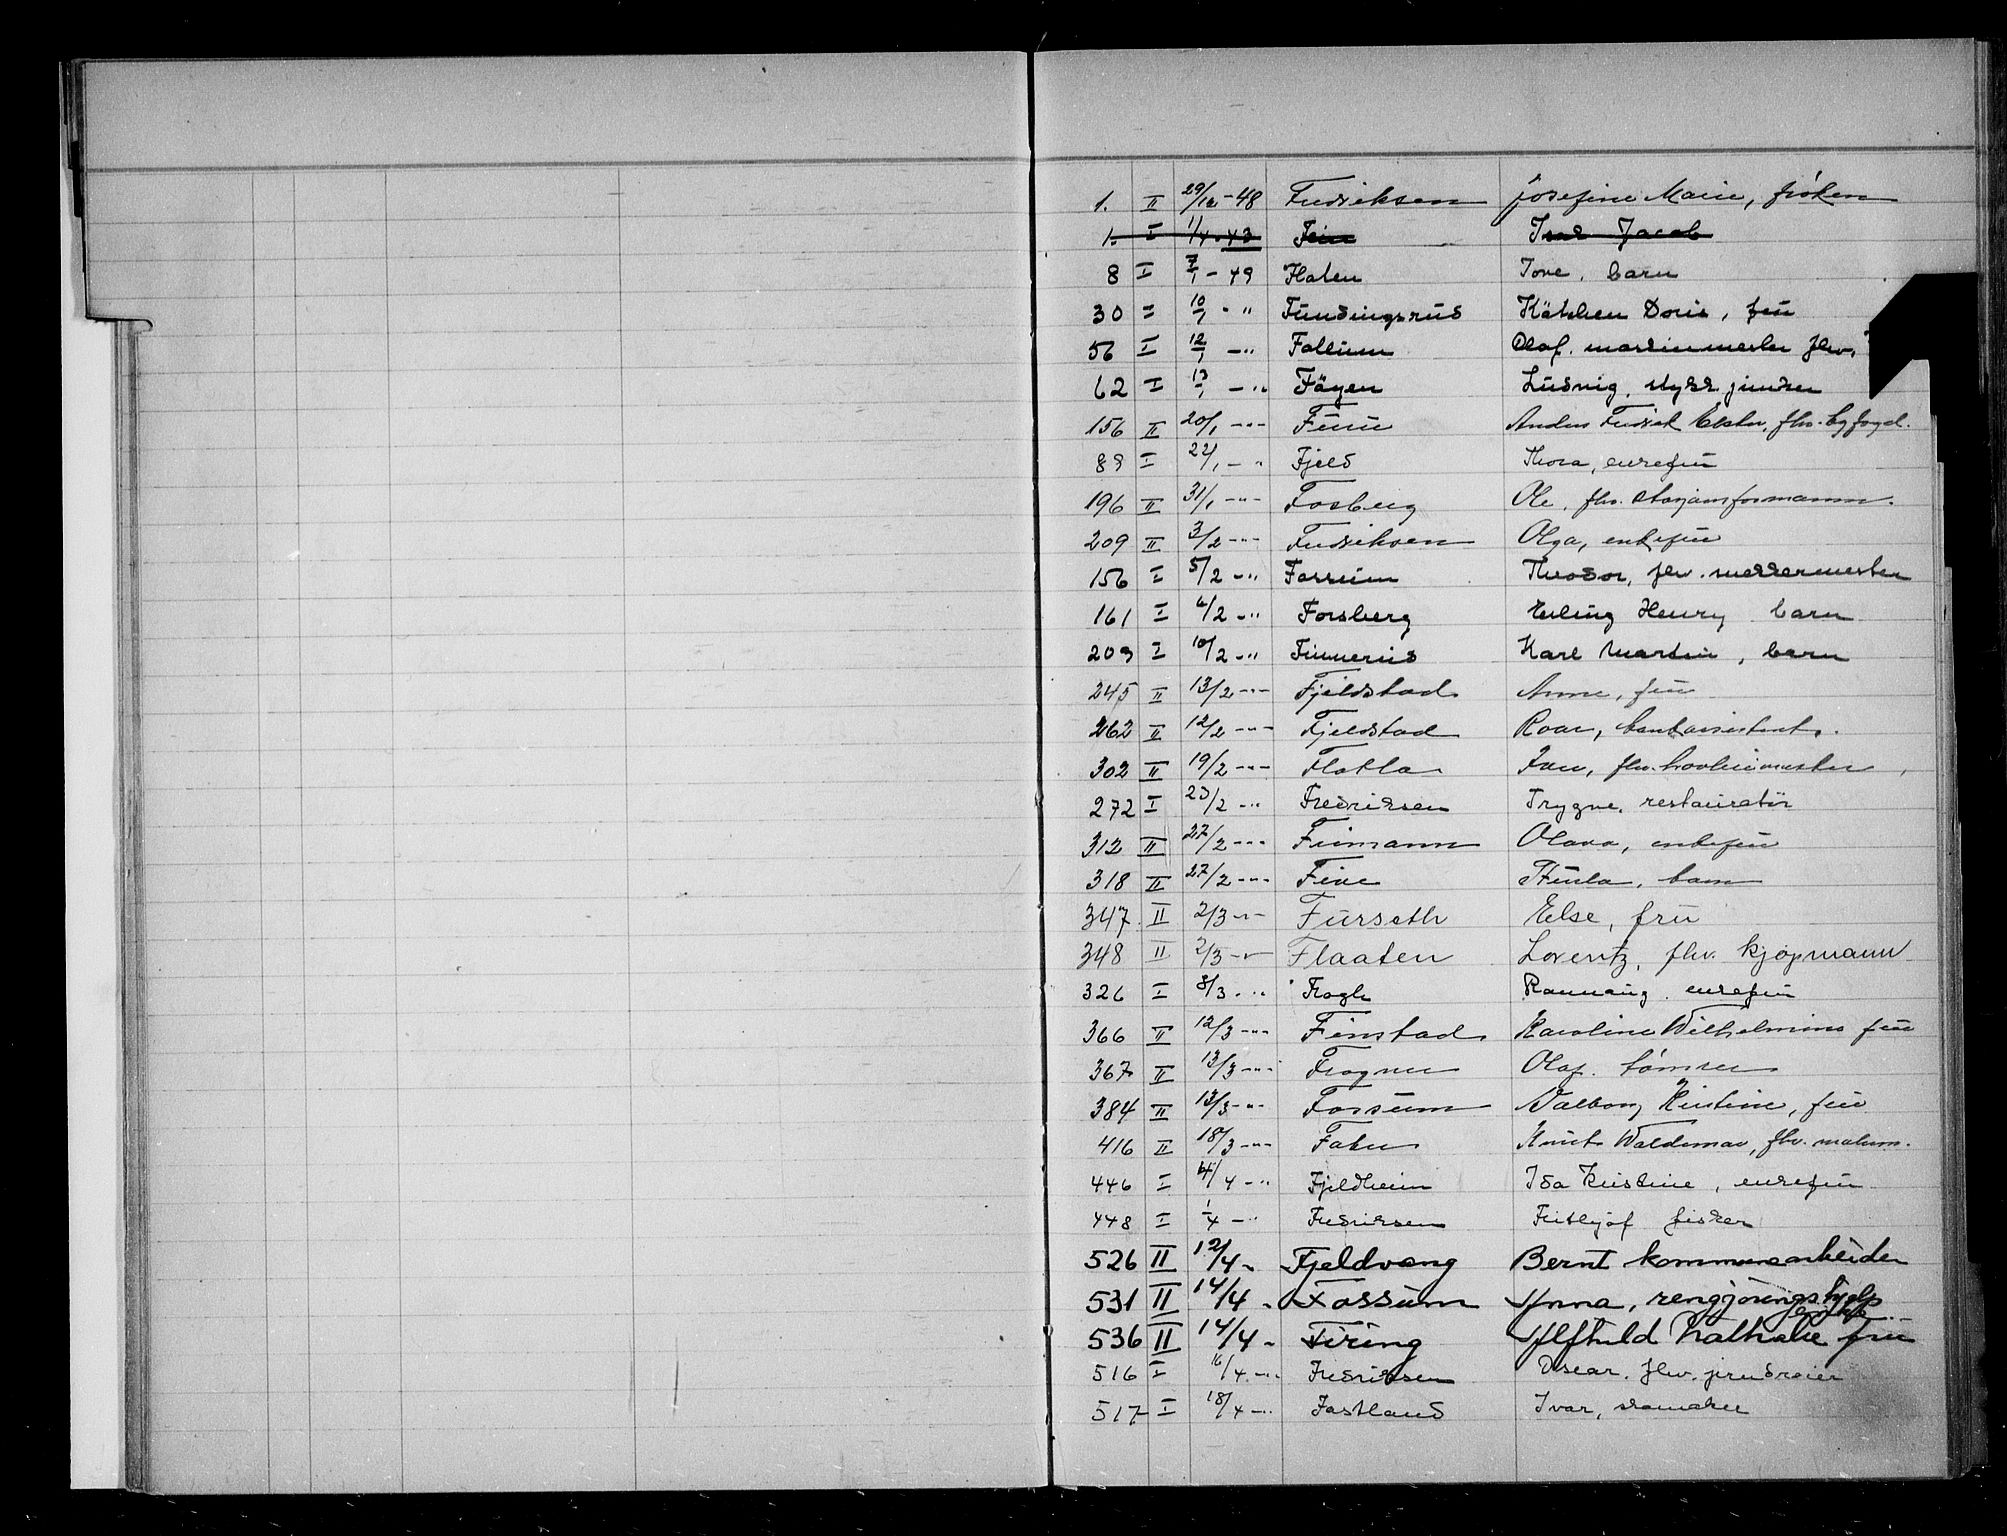 1. II 29/12-48 Fredriksen Josefine Marie, frøken
1. I 1/4-43 Fein Isak Jacob
8 I 7/1-49 Flaten Tove, barn
30 I 10/1 - " Fundingsrud Kätchen Doris, fru
56 I 12/1 - " Follum Olaf. maskinmester fhv.
62 I 13/1 - " Föyen Ludvig, stykk junker
156 II 20/1 - " - Furu Anders Fredrik Elster, fhv. byfogd.
89 I 22/1 - " Fjeld Thora, enkefru
196 II 31/1 - " - Fosberg Ole, fhv. stasjonsformann.
209 II 3/2 - " - Fredriksen Olga, enkefru
156 I 5/2 - " Fossum Theodor, fhv. mekkermester
161 I 6/2 - " Forsberg Erling Henry barn
209 I 10/2 - " Finnerud Karl Martin, barn
245 II 13/2 - " - Fjeldstad Anne, fru
262 II 12/2 - " - Fjeldstad Roar, bankassistent.
302 II 19/2 - " - Flatla Ivar, fhv.
272 I 23/2 - " Fredriksen Trygve, restauratör
312 II 27/2 - " - Freimann Olava, enkefru
318 II 27/2 - " - Feve barn
347. II 2/3 - " - Furseth Else, fru
348 II 2/3 - " - Flaaten Lorentz, fhv. kjøpmann
326 I 8/3 - " Fragh Rannaug. enkefru
366 II 12/3 - " - Finstad Karoline Wilhelmine fru
367 II 13/3 - " - Frogner Olaf. tømrer
384 II 13/3 - " - Fossum Valborg Kristine, fru
416 II 18/3 - " - Faber Knut Waldemar, fhv. malerm.
446 I 4/4 - " Fjeldheim Ida Kristine, enkefru
448 I 1/4 - " Fredriksen Fritjof fisker
526 II 12/4 - Fjeldvang Bernt kommunearbeider
531 II 14/4 - Fossum Anna, rengjöringshjelp
536 II 14/4 - Firing Alfhild Nathalie fru
516 I 16/4 - " Fredriksen Oscar. fhv.
517 I 18/4 - " Fastland Ivar, skomaker